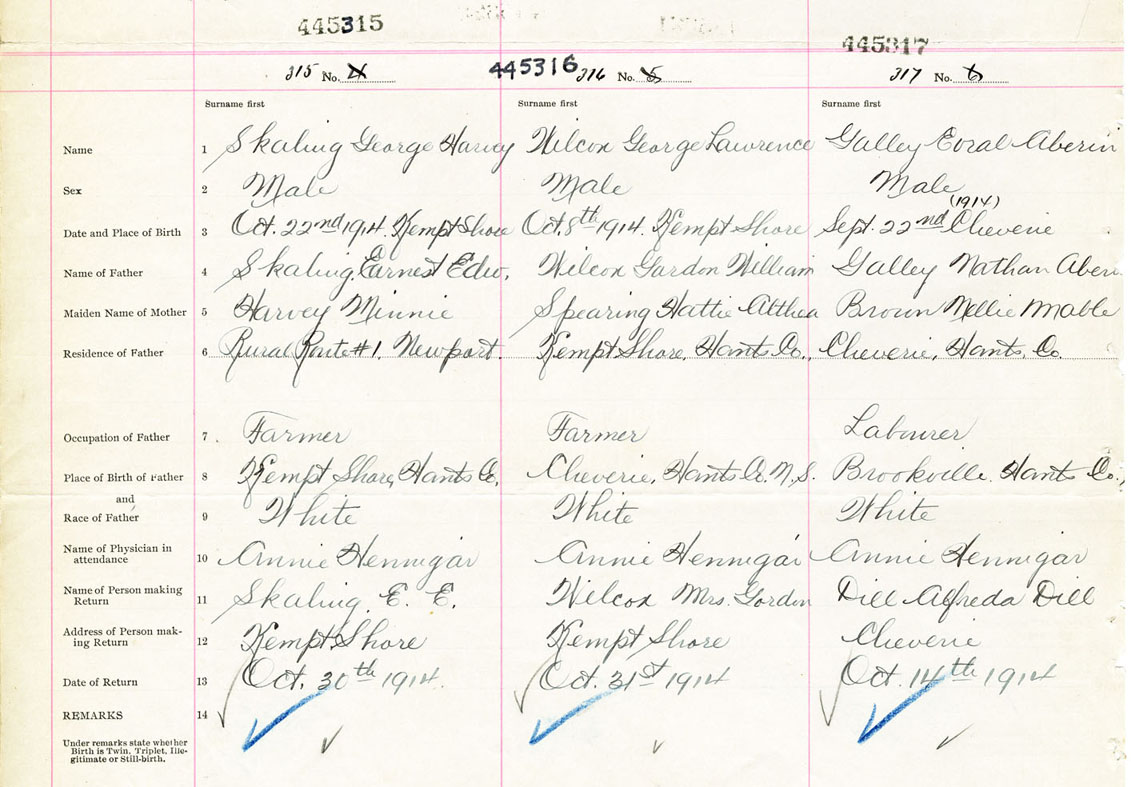 445315
445317
315 No. 4 445316 316 No. 5 317 No. 6
Surname first Surname first Surname first
Name 1 Skaling George Harvey Wilcox George Lawrence Galley Coral Aberin
Sex 2 Male Male Male
(1914)
Date and Place of Birth 3 Oct. 22nd 1914. Kempt Shore Oct. 8th 1914. Kempt Shore Sept. 22nd Cheverie
Name of Father 4 Skaling, Earnest Edw. Wilcox Gordon William Galley Nathan
Maiden Name of Mother 5 Harvey Minnie Spearing Hattie Althea Brown Nellie Mable
Residence of Father 6 Rural Route #1. Newport. Kempt Shore, Hants Co., Cheverie, Hants, Co.
Occupation of Father 7 Farmer Farmer Labourer
Place of Birth of Father 8 Kempt Shore, Hants Co, Cheverie, Hants Co. N.S. Brookville. Hants Co.,
and
Race of Father 9 White White White
Name of Physician in
attendance 10 Annie Hennigar Annie Hennigar Annie Hennigar
Name of Person making
Return 11 Skaling, E. E. Wilcox Mrs. Gordon Dill Alfreda Dill
Address of Person mak-
ing Return 12 Kempt Shore Kempt Shore Cheverie
Date of Return 13 Oct. 30th 1914. Oct. 31st 1914 Oct. 14th 1914
REMARKS 14
Under remarks state whether
Birth is Twin, Triplet, Ille-
gitimate or Still-birth.